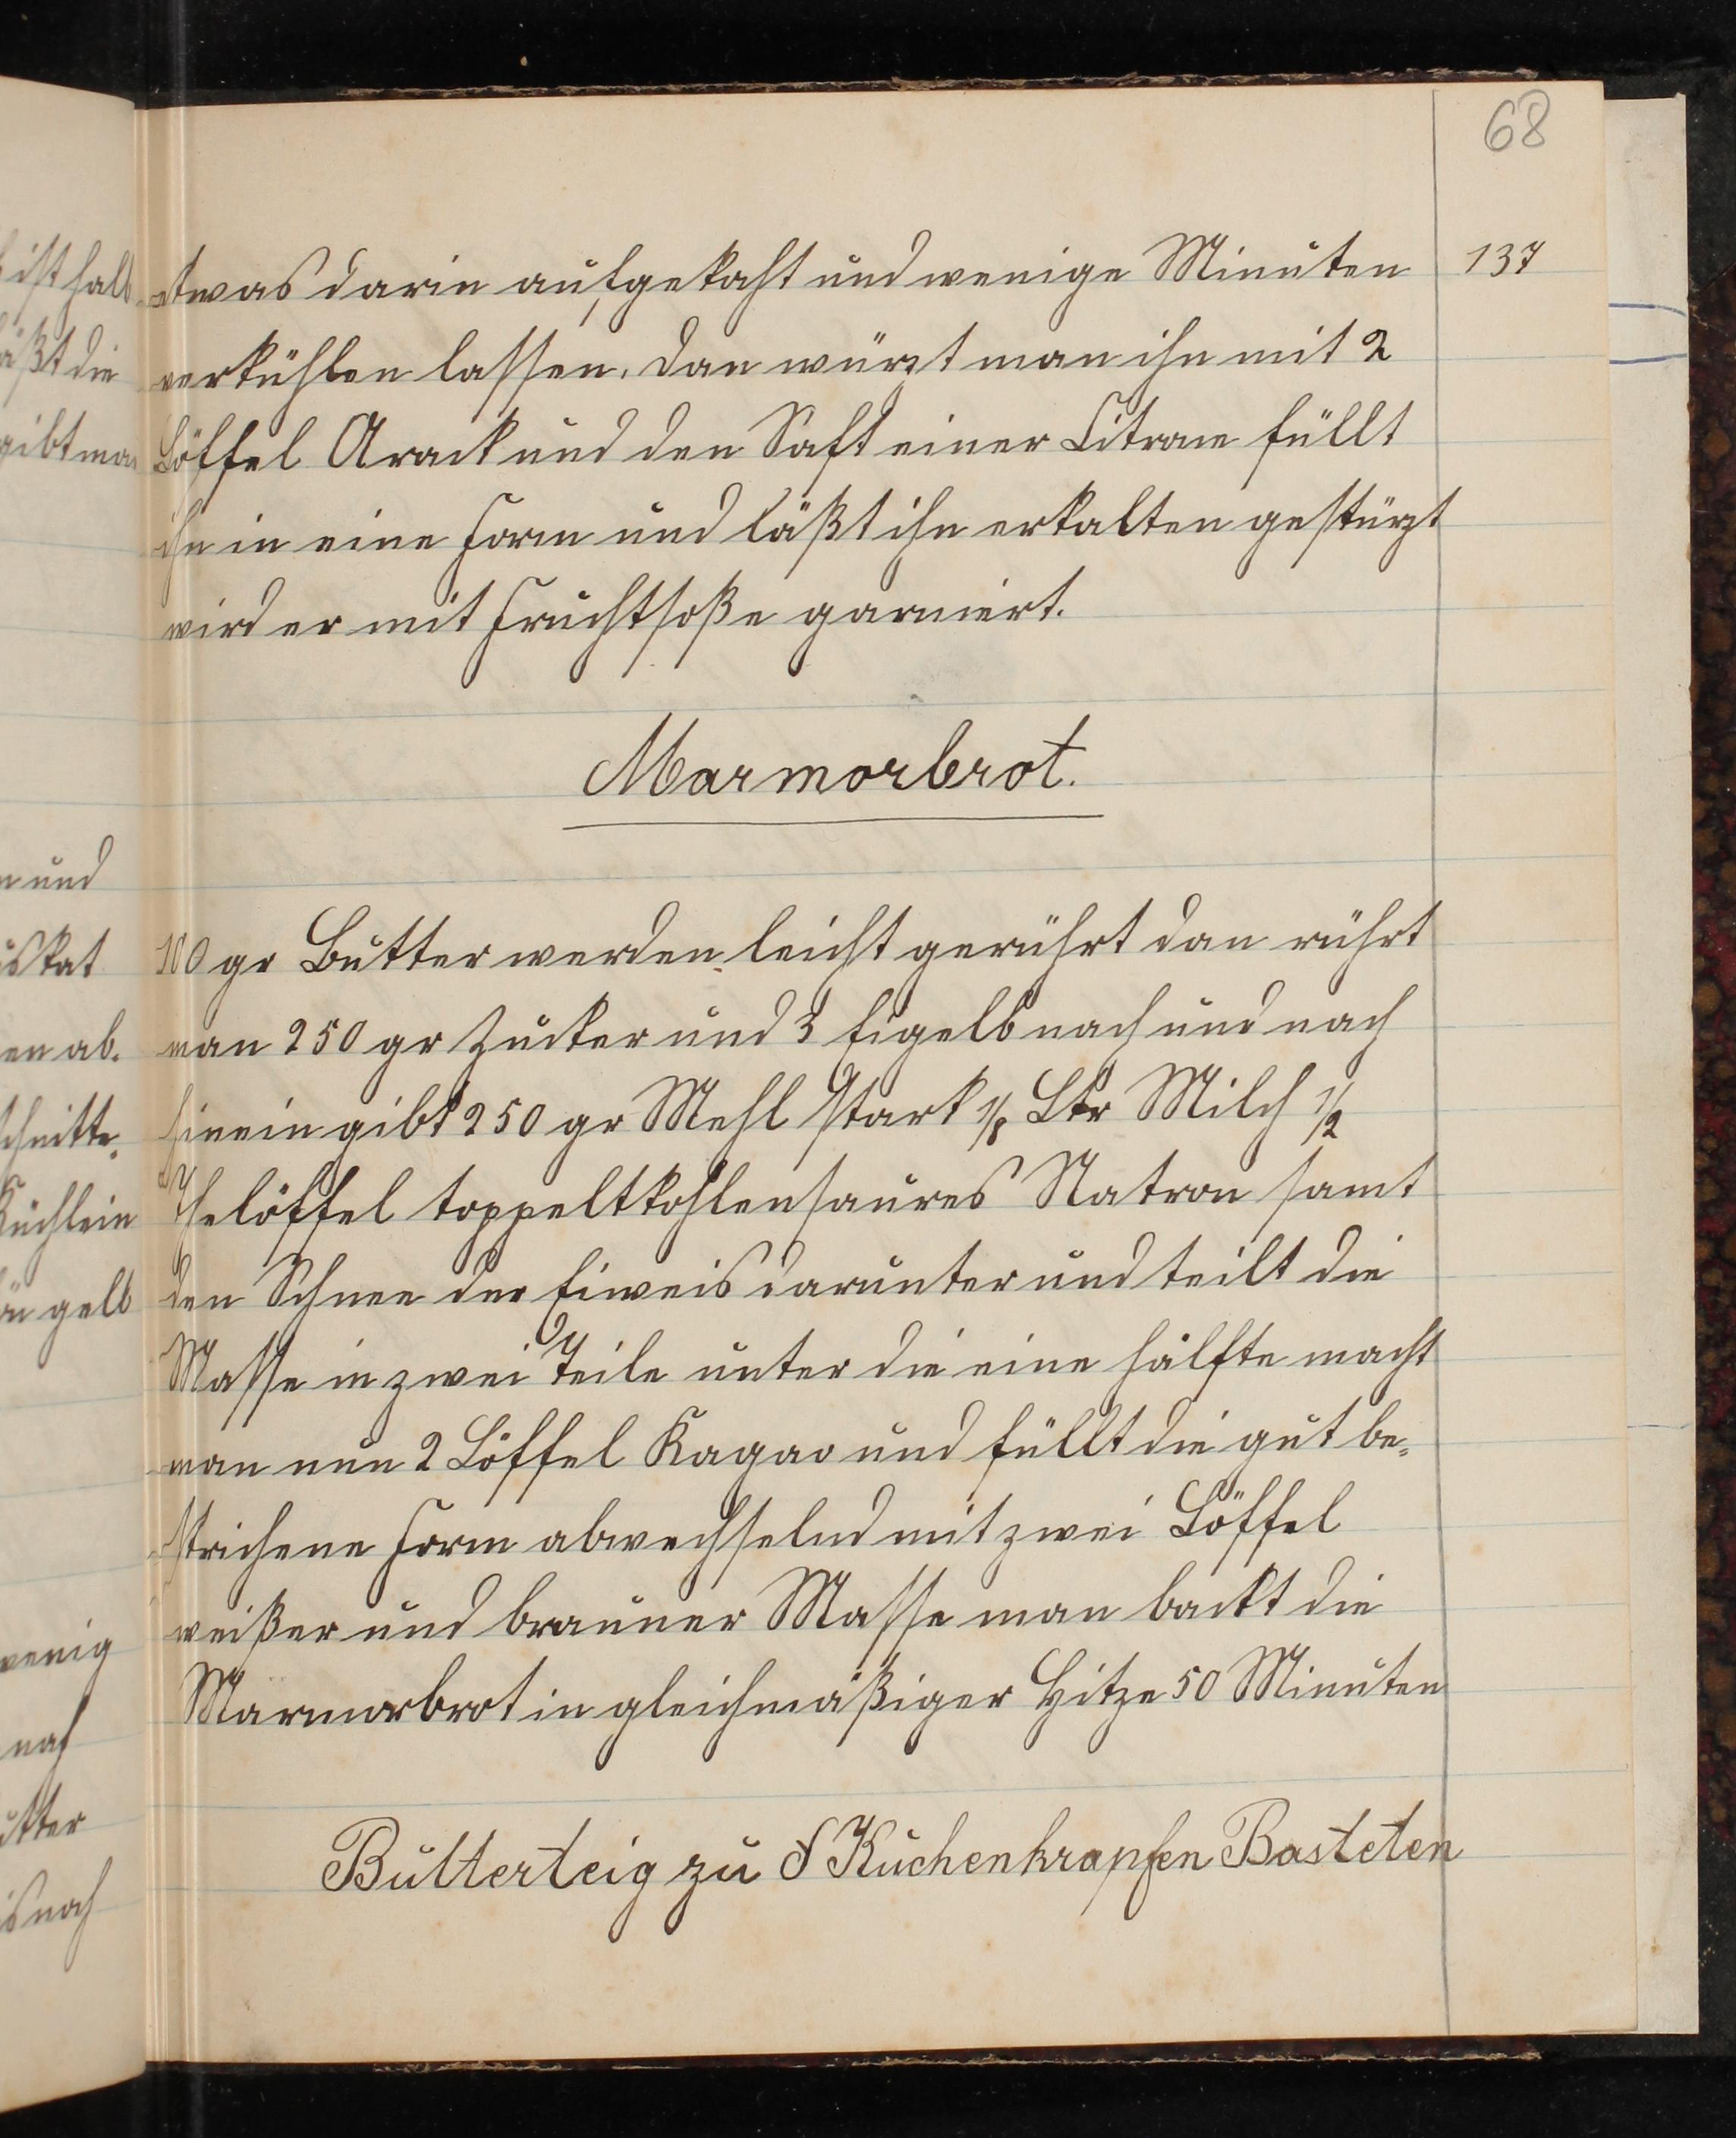 68
137
etwas darin aufgekocht und wenige Minuten
verkühlen lassen. dan würzt man ihn mit 2
Löffel Arack und den Saft einer Citrone füllt
ihn in eine Form und läßt ihn erkalten gestürzt
wird er mit Fruchtsoße garniert.
Marmorbrot.
100 gr Butter werden leicht gerührt dan rührt
man 250 gr Zucker und 3 Eigelb nach und nach
hinein gibt 250 gr Mehl stark 1/8 Ltr Milch 1/2
Thelöffel toppeltkohlensaures Natron samt
den Schnee der Eiweis darunter und teilt die
Masse in zwei Teile unter die eine hälfte macht
man nun 2 Löffel Kagao und füllt die gut be-
strichene Form abwechselnd mit zwei Löffel
weißer und brauner Masse man backt die
Marmorbrot in gleichmäßiger Hitze 50 Minuten
Butterteig zu Küchenkrapfen Basteten
ist halb
läßt die
gibt man
und
en ab.
schnitte.
Küchlein
gelb
wenig
nach
noch